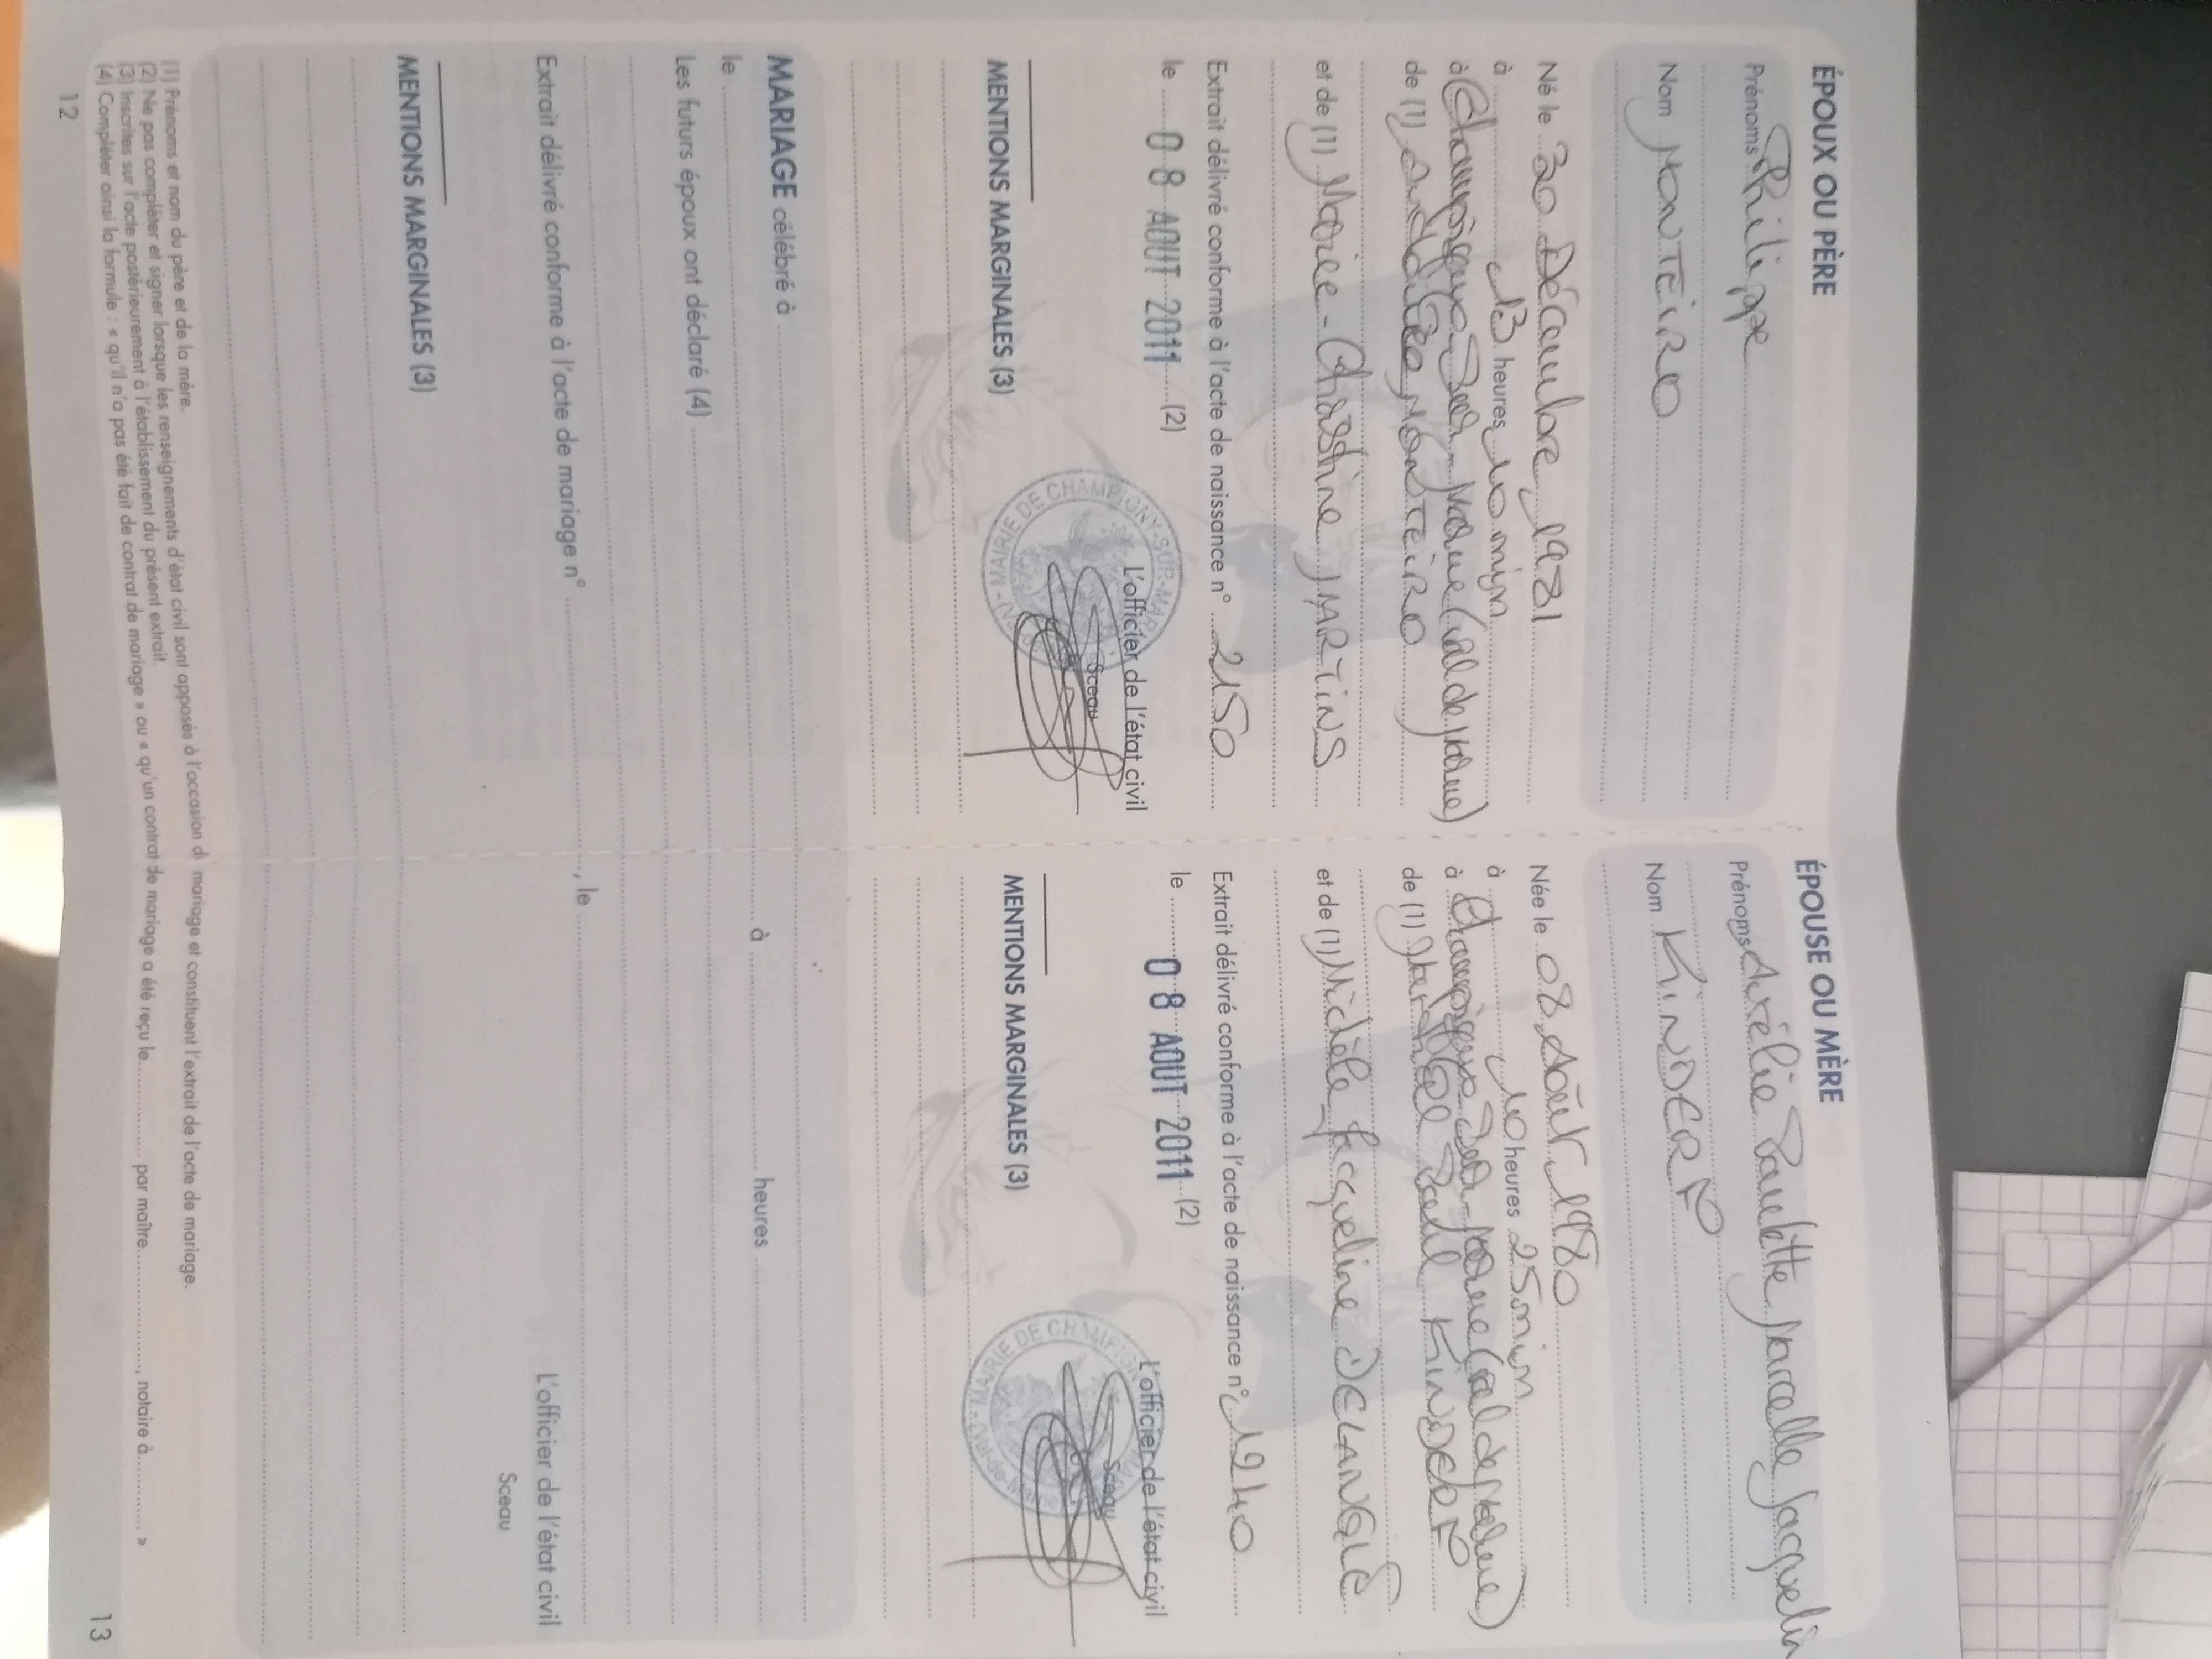 ÉPOUX OU PÈRE
Prénoms Philippe
Nom MONTEIRO
Né le 30 Décembre 1981
à 13 heures 10 min
à Champigny-Sur-Marne (Val de Marne)
de (1) MONTEIRO
et de (1) Marie-Christine MARTINS
Extrait délivré conforme à l'acte de naissance n° 2150
le 08 AOUT 2011 (2)
L'officier de l'état civil
Sceau
MAIRIE DE CHAMPIGNY-SUR-MARNE
MENTIONS MARGINALES (3)
ÉPOUSE OU MÈRE
Prénoms Aurélie Paulette Marcelle Jacquelin
Nom KINDERF
Née le 08 Août 1980
à 10 heures 25 min
à Champigny-Sur-Marne (Val de Marne)
de (1) Paul KINDERF
et de (1) Michèle Jacqueline DELANGLE
Extrait délivré conforme à l'acte de naissance n° 1940
le 08 AOUT 2011 (2)
L'officier de l'état civil
Sceau
MAIRIE DE CHAMPIGNY
(Val-de-Marne)
MENTIONS MARGINALES (3)
MARIAGE célébré à
le à heures
Les futurs époux ont déclaré (4)
Extrait délivré conforme à l'acte de mariage n° , le
L'officier de l'état civil
Sceau
MENTIONS MARGINALES (3)
(1) Prénoms et nom du père et de la mère.
(2) Ne pas compléter et signer lorsque les renseignements d'état civil sont apposés à l'occasion d mariage et constituent l'extrait de l'acte de mariage.
(3) Inscrites sur l'acte postérieurement à l'établissement du présent extrait.
(4) Compléter ainsi la formule : « qu'il n'a pas été fait de contrat de mariage » ou « qu'un contrat de mariage a été reçu le............ par maître..............., notaire à.......... »
12
13